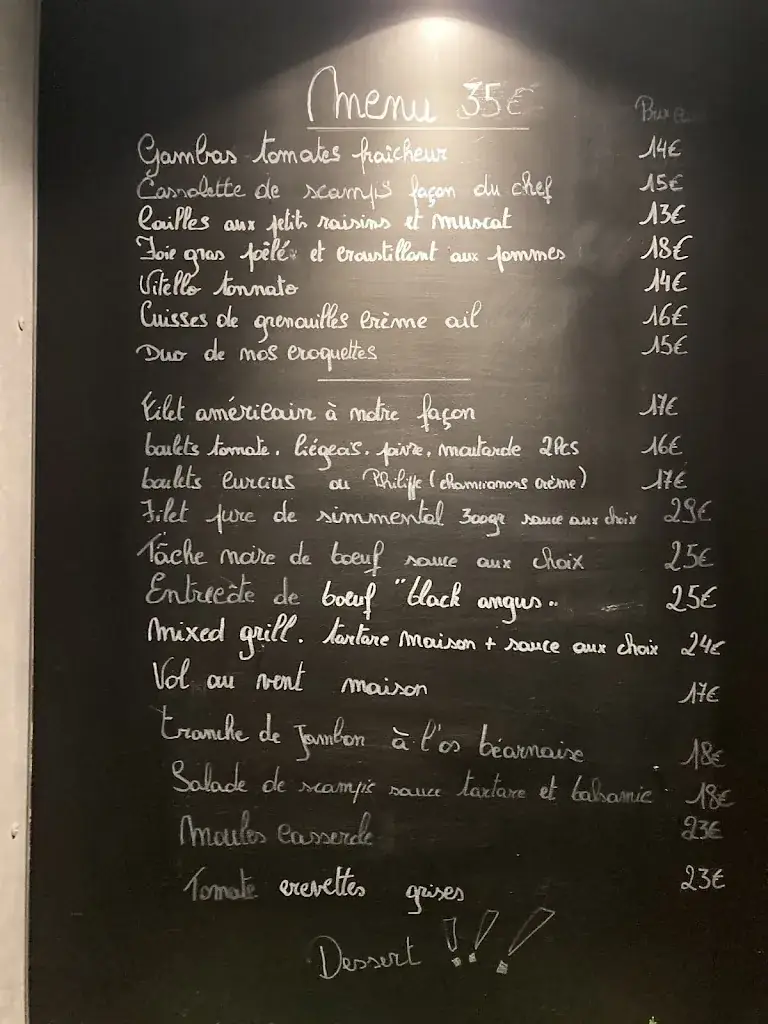 Menu 35€
Gambas tomates fraîcheur 14€
Cassolette de scampis façon du chef 15€
Cailles aux petits raisins et muscat 13€
Foie gras pôêlé et croustillant aux pommes 18€
Vitello tonnato 14€
Cuisses de grenouilles crème ail 16€
Duo de nos croquettes 15€
Filet américain à notre façon 17€
boulets tomate, liégeois, poivre, moutarde 2Pcs 16€
boulets Curcius ou Philippe (champignons crème) 17€
Filet pure de simmental 300gr sauce aux choix 29€
Tâche noire de boeuf sauce aux choix 25€
Entrecôte de boeuf "black angus" 25€
Mixed grill. tartare maison + sauce aux choix 24€
Vol au vent maison 17€
Tranche de Jambon à l'os béarnaise 18€
Salade de scampis sauce tartare et balsamic 18€
Moules Casserole 23€
Tomate crevettes grises 23€
Dessert !!!